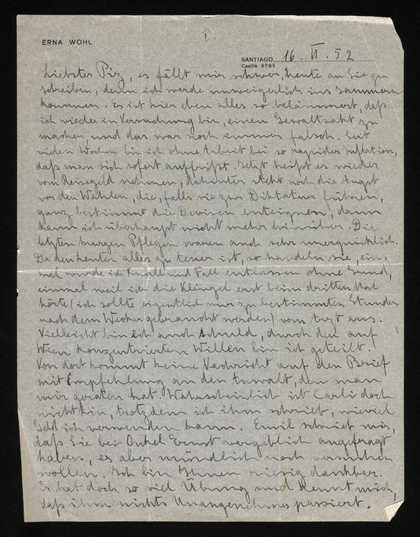 ERNA WOHL
1
SANTIAGO 16. VI. 52
Casilla 9793
Liebster Piz, es fällt mir schwer, heute an Sie zu
schreiben, denn ich werde unweigerlich ins Jammern
kommen. Es ist hier eben alles so beklommen, daß
ich wieder in Versuchung bin, einen Gewaltakt zu
machen, und das war noch immer falsch. Seit
vielen Wochen bin ich ohne Arbeit bei so rapider Inflation,
daß man sich sofort auffrißt. Jetzt heißt es wieder
vom Reisegeld nehmen, dahinter steht noch die Angst
vor den Wahlen, die, falls sie zur Diktatur führen,
ganz bestimmt die Devisen enteignen, dann
kann ich überhaupt nicht mehr hinüber. Die
letzten kurzen Pflegen waren auch sehr unerquicklich.
Da den Leuten alles zu teuer ist, so handeln sie, ein-
mal wurde ich Knall und Fall entlassen ohne Grund,
einmal weil ich die Klingel erst beim dritten Mal
hörte (ich sollte eigentlich nur zu bestimmten Stunden
nach dem Wecker gebraucht werden) vom Arzt aus.
Vielleicht bin ich auch Schuld, durch den auf
Wien konzentrierten Willen bin ich geteilt.
Von dort kommt keine Nachricht auf den Brief
mit Empfehlung an den Anwalt, den man
mir geraten hat. Wahrscheinlich ist Carli doch
nicht hin, trotzdem ich ihm schrieb, wieviel
Geld ich verwenden kann. Emil schrieb mir,
daß Sie bei Onkel Ernst vergeblich angefragt
haben, es aber mündlich noch versuchen
wollen. Ich bin Ihnen riesig dankbar.
Es hat doch so viel Übung und kennt mich,
daß ihm nichts Unangenehmes passiert.